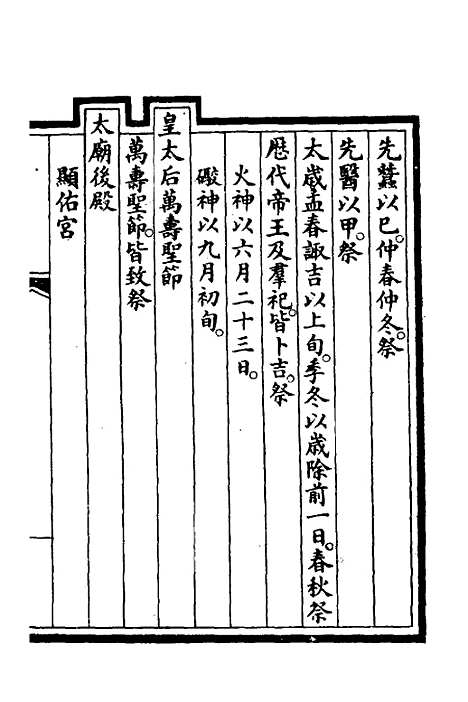 先蠶以巳。仲春仲冬。祭
先醫以甲。祭
太歲孟春諏吉以上旬。季冬以歲除前一日。春秋祭
歴代帝王及羣祀。皆卜吉。祭
火神以六月二十三日。
礮神以九月初旬。
皇太后萬壽聖節
萬壽聖節。皆致祭
太廟後殿
顯佑宮